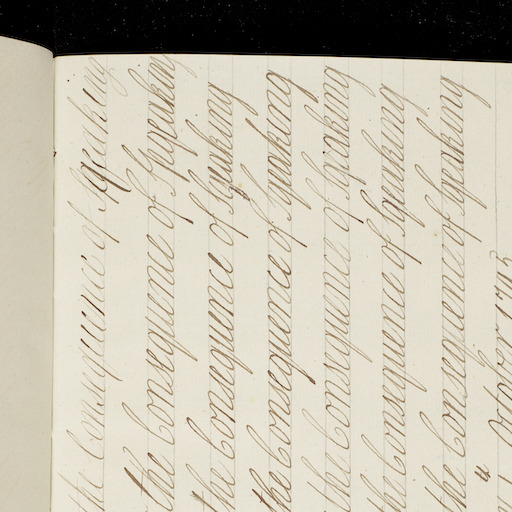 the Consequence of Speaking
the Consequence of Speaking
the Consequence of Speaking
the Consequence of Speaking
the Consequence of Speaking
the Consequence of Speaking
the Consequence of Speaking
October